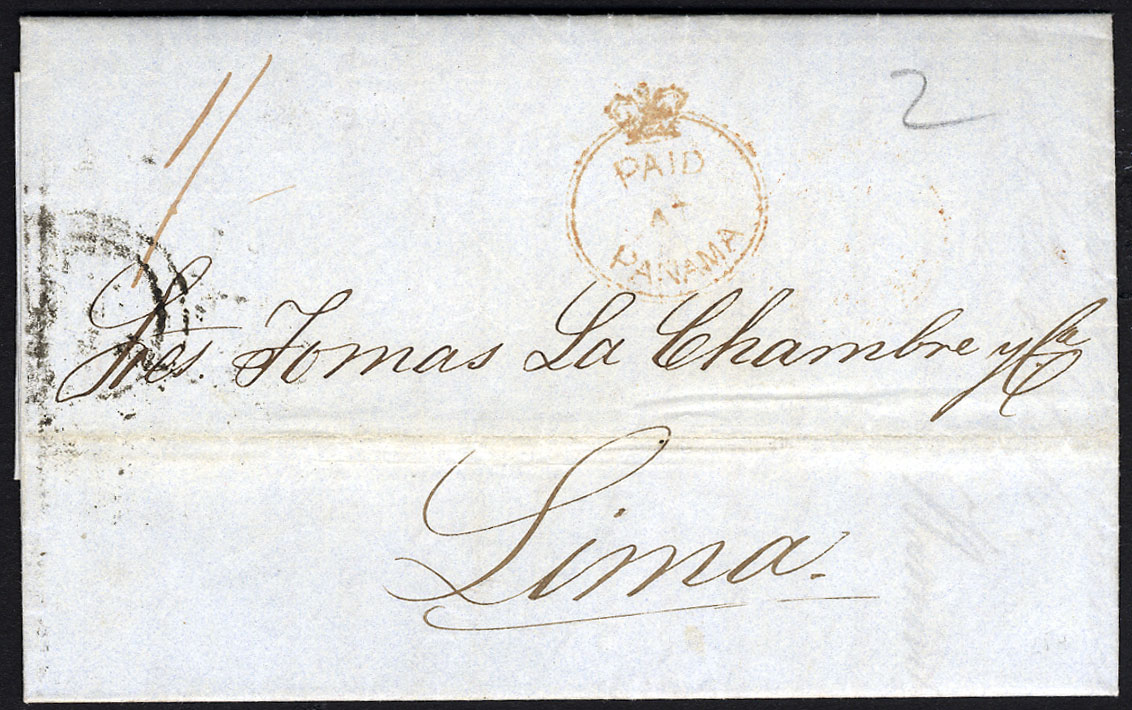 2
1/
PAID
AT
PANAMA
Sres. Tomas La Chambre y Ca
Lima.